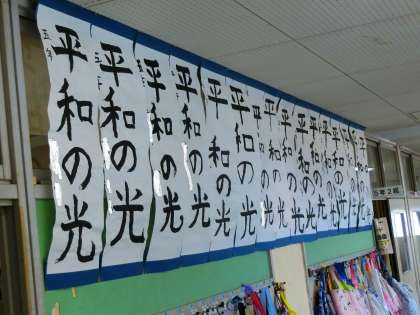 平和の光
五年
平和の光
五年
平和の光
五年
平和の光
五年
平和の光
平和の光
平和の光
平和の光
平和の光
平和の光
平和の光
平和の光
平和の光